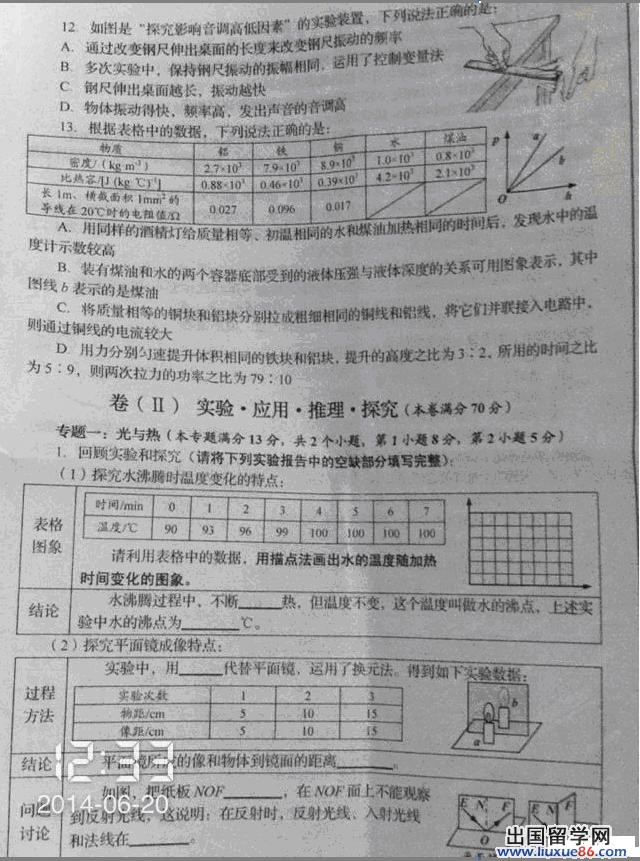 12. 如图是“探究影响音调高低因素”的实验装置，下列说法正确的是：
A. 通过改变钢尺伸出桌面的长度来改变钢尺振动的频率
B. 多次实验中，保持钢尺振动的振幅相同，运用了控制变量法
C. 钢尺伸出桌面越长，振动越快
D. 物体振动得快，频率高，发出声音的音调高
13. 根据表格中的数据，下列说法正确的是：
物质 铝 铁 铜 水 煤油
密度/(kg·m⁻³) 2.7×10³ 7.9×10³ 8.9×10³ 1.0×10³ 0.8×10³
比热容/[J·(kg·℃)⁻¹] 0.88×10³ 0.46×10³ 0.39×10³ 4.2×10³ 2.1×10³
长1m、横截面积1mm²的
导线在20℃时的电阻值/Ω 0.027 0.096 0.017
p a b O h
A. 用同样的酒精灯给质量相等、初温相同的水和煤油加热相同的时间后，发现水中的温
度计示数较高
B. 装有煤油和水的两个容器底部受到的液体压强与液体深度的关系可用图象表示，其中
图线b表示的是煤油
C. 将质量相等的铜块和铝块分别拉成粗细相同的铜线和铝线，将它们并联接入电路中，
则通过铜线的电流较大
D. 用力分别匀速提升体积相同的铁块和铝块，提升的高度之比为3∶2，所用的时间之比
为5∶9，则两次拉力的功率之比为79∶10
卷（Ⅱ） 实验·应用·推理·探究（本卷满分70分）
专题一：光与热（本专题满分13分，共2个小题，第1小题8分，第2小题5分）
1. 回顾实验和探究（请将下列实验报告中的空缺部分填写完整）：
（1）探究水沸腾时温度变化的特点：
表格
图象
时间/min 0 1 2 3 4 5 6 7
温度/℃ 90 93 96 99 100 100 100 100
请利用表格中的数据，用描点法画出水的温度随加热
时间变化的图象。
结论
水沸腾过程中，不断____热，但温度不变，这个温度叫做水的沸点，上述实
验中水的沸点为____℃。
（2）探究平面镜成像特点：
过程
方法
实验中，用____代替平面镜，运用了换元法。得到如下实验数据：
实验次数 1 2 3
物距/cm 5 10 15
像距/cm 5 10 15
a b
结论
平面镜所成的像和物体到镜面的距离____。
问题
讨论
如图，把纸板NOF____，在NOF面上不能观察
到反射光线，这说明：在反射时，反射光线、入射光线
和法线在____。
E N F O E N F
12:33
2014-06-20
出国留学网
www.liuxue86.com